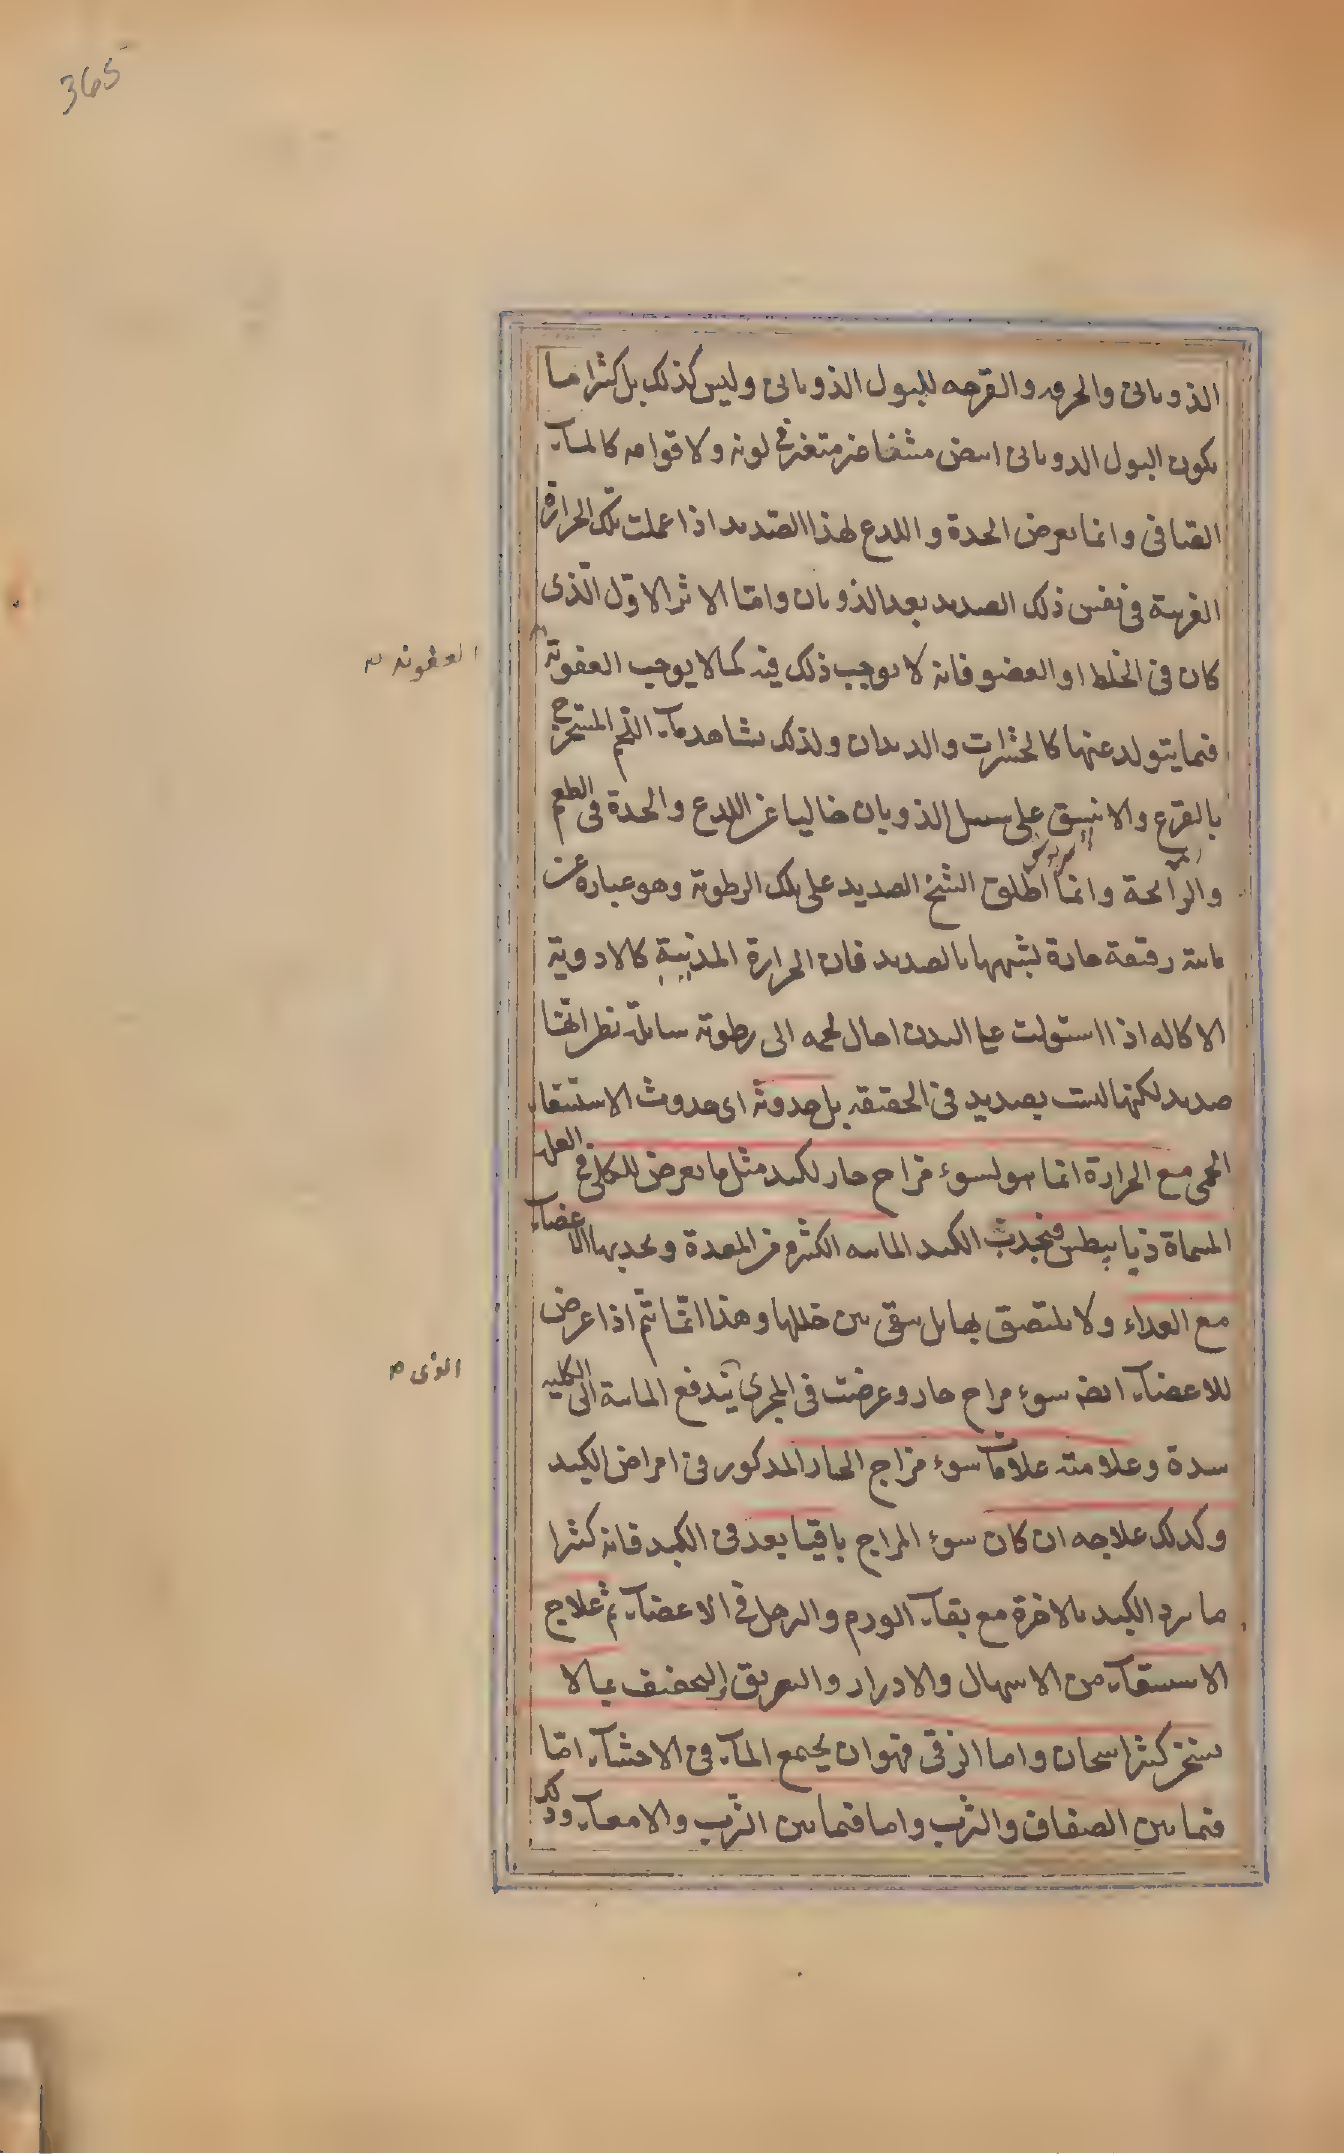 365
الذوبانى والحرقه والقرحه للبول الذوبانى وليس كذلك بل كثيرا ما
يكون البول الذوبانى ابيض مشفا غير متغير فى لونه ولا قوامه كالماء
الصافى وانما يعرض الحدة واللدع لهذا الصديد اذا عملت تلك الحرارة
الغريبة فى نفس ذلك الصديد بعد الذوبان واما الاثر الاول الذى
كان فى الخلط او العضو فانه لا يوجب ذلك فيه كما لا يوجب العفونة
العفونه
فيما يتولد عنها كالحشرات والديدان ولذلك يشاهد ماء اللحم المستخرج
بالقرع والانبيق على سبيل الذوبان خاليا عن اللدع والحدة فى الطعم
والرائحة وانما اطلق الشيخ الصديد على تلك الرطوبة وهو عبارة عن
مائية رقيقة حادة لشبهها بالصديد فان الحرارة المذيبة كالادوية
الاكاله اذا استولت على البدن احال لحمه الى رطوبة سائلة نظر انها
صديد لكنها ليست بصديد فى الحقيقه بل حدوثه اى حدوث الاستسقاء
اللحمى مع الحرارة انما هو لسوء مزاج حار لكبد مثل ما يعرض للكلى فى العله
المسماة ذيابيطس فيجذب الكبد المائيه الكثيره من المعدة ويجذبها الاعضاء
مع الغداء ولا يلتصق بها بل يبقى بين خللها وهذا انما يتم اذا عرض
للاعضاء ايضا سوء مزاج حار وعرضت فى المجرى يندفع المائية الى الكليه
الذى
سدة وعلامته علامات سوء مزاج الحار المدكور فى امراض الكبد
وكدلك علاجه ان كان سوء المزاج باقيا بعد فى الكبد فانه كثيرا
ما يبرد الكبد بالاخرة مع بقاء الورم والترهل فى الاعضاء ثم علاج
الاستسقاء من الاسهال والادرار والتعريق والتجفيف بما لا
يسخن كثير اسخان واما الزقى فهو ان يجتمع الماء فى الاحشاء اما
فيما بين الصفاق والثرب واما فيما بين الثرب والامعاء وذلك